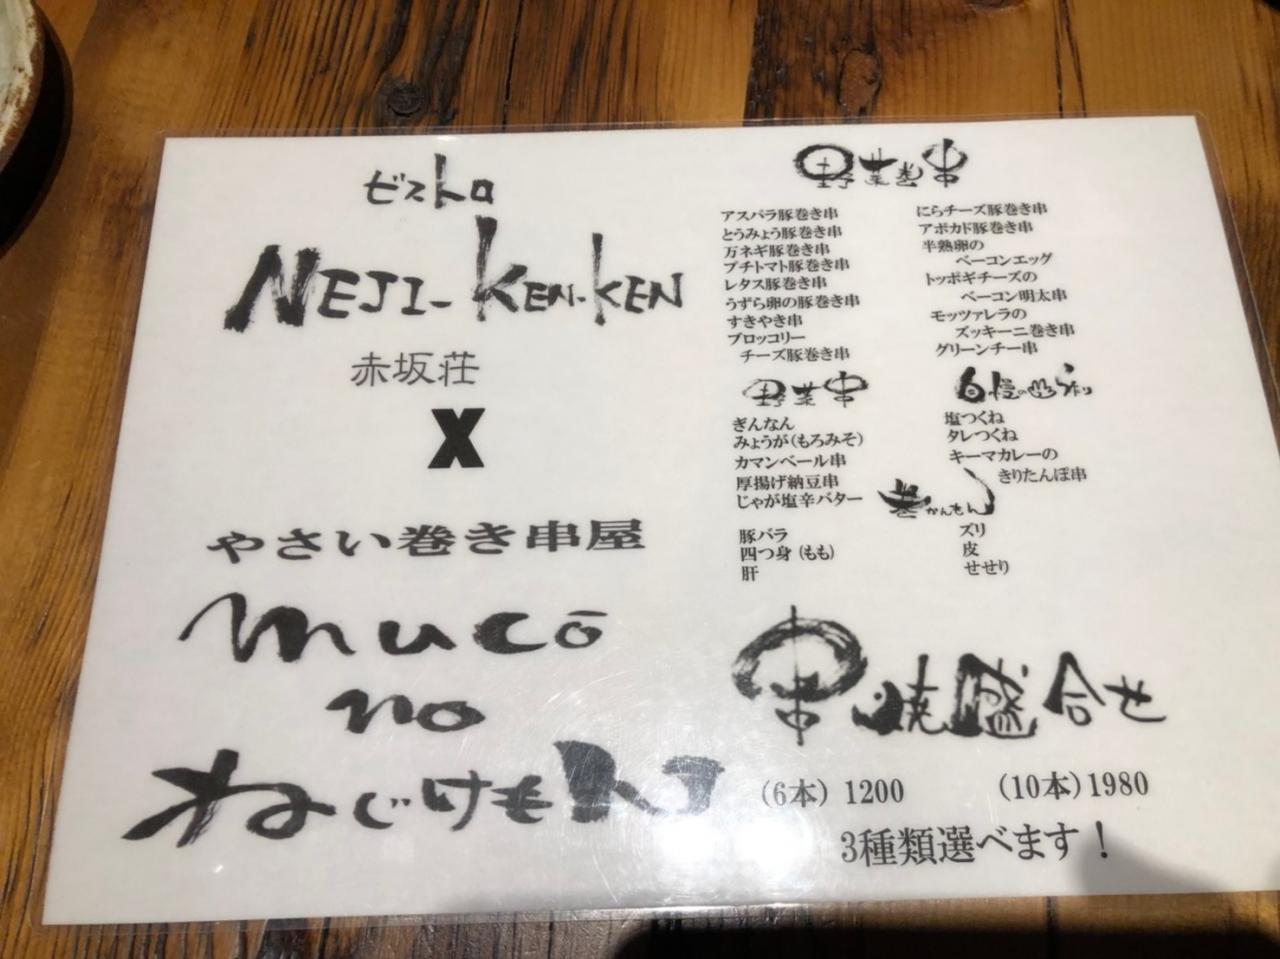 ビストロ
NEJI-KEN-KEN
赤坂荘
X
やさい巻き串屋
mucō
no
ねじけもん
野菜巻き串
アスパラ豚巻き串
とうみょう豚巻き串
万ネギ豚巻き串
プチトマト豚巻き串
レタス豚巻き串
うずら卵の豚巻き串
すきやき串
ブロッコリー
チーズ豚巻き串
にらチーズ豚巻き串
アボカド豚巻き串
半熟卵の
ベーコンエッグ
トッポギチーズの
ベーコン明太串
モッツァレラの
ズッキーニ巻き串
グリーンチー串
野菜串
ぎんなん
みょうが(もろみそ)
カマンベール串
厚揚げ納豆串
じゃが塩辛バター
自慢の
塩つくね
タレつくね
キーマカレーの
きりたんぽ串
巻かんもん
豚バラ
四つ身(もも)
肝
ズリ
皮
せせり
串焼盛合せ
(6本) 1200
(10本) 1980
3種類選べます!